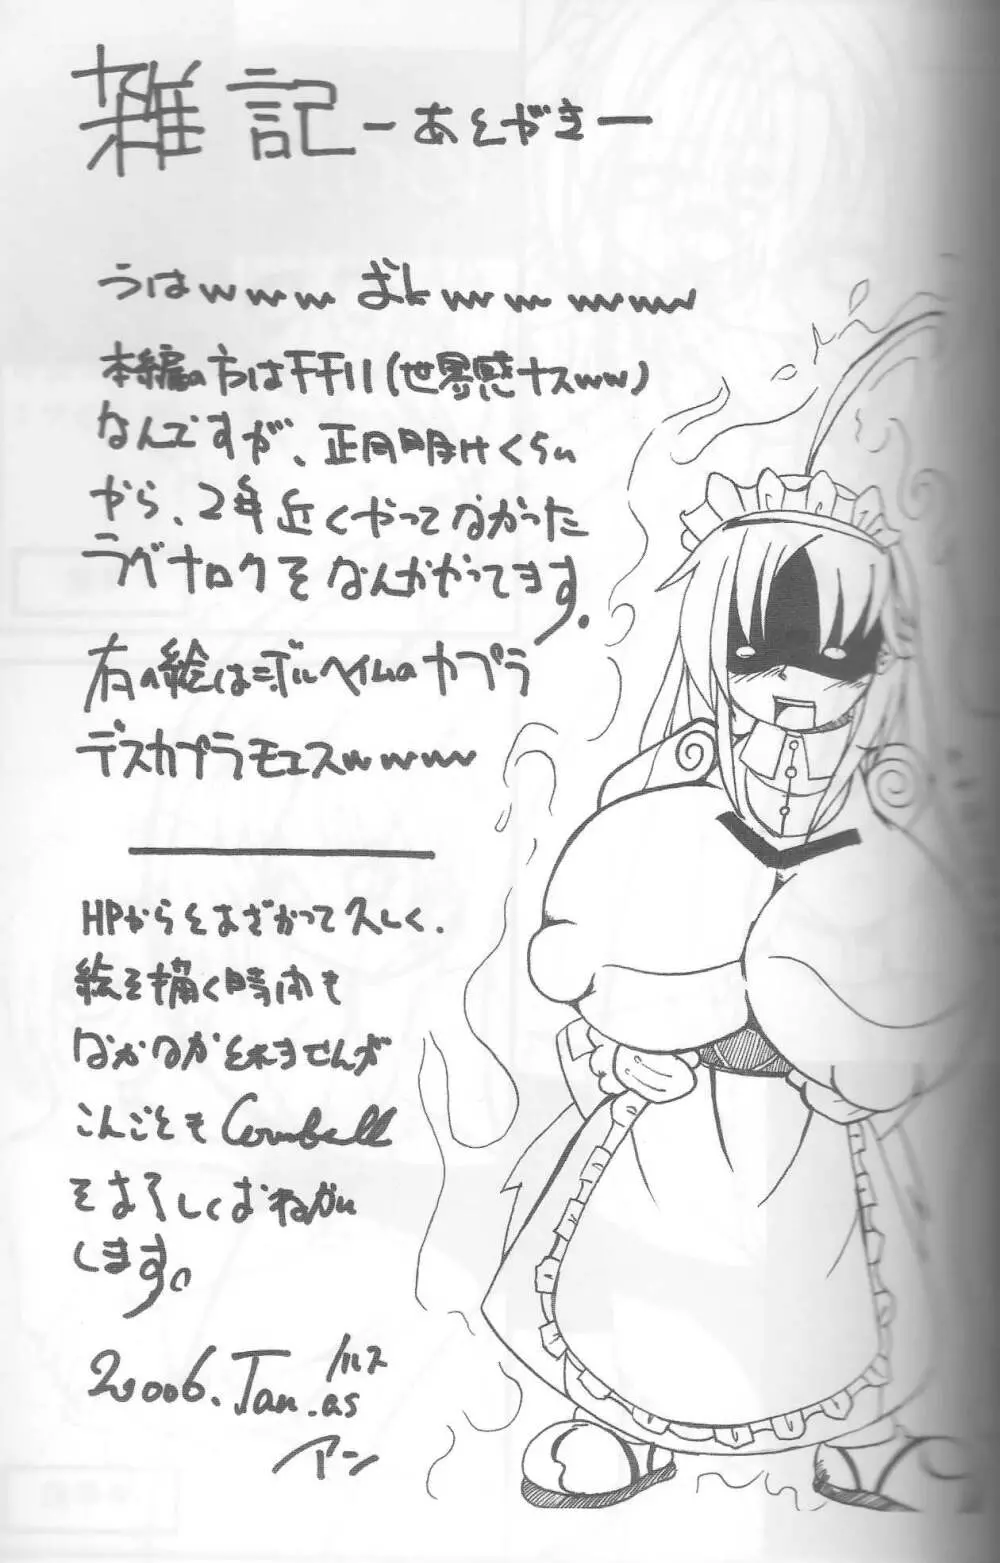 雑記 ーあとがきー
うはwww おkwwwwww
本編の方はFF11(世界感ナスww)
なんですが、正月明けくらい
から、2年近くやってなかった
ラグナロクをなんかやってます。
右の絵はニボルヘイムのカプラ
デスカプラモエスwwww
HPからとおざかって久しく、
絵を描く時間も
なかなかとれませんが
こんごとも Cornbell
をよろしくおねがい
します。
2006.Jan.as
アン